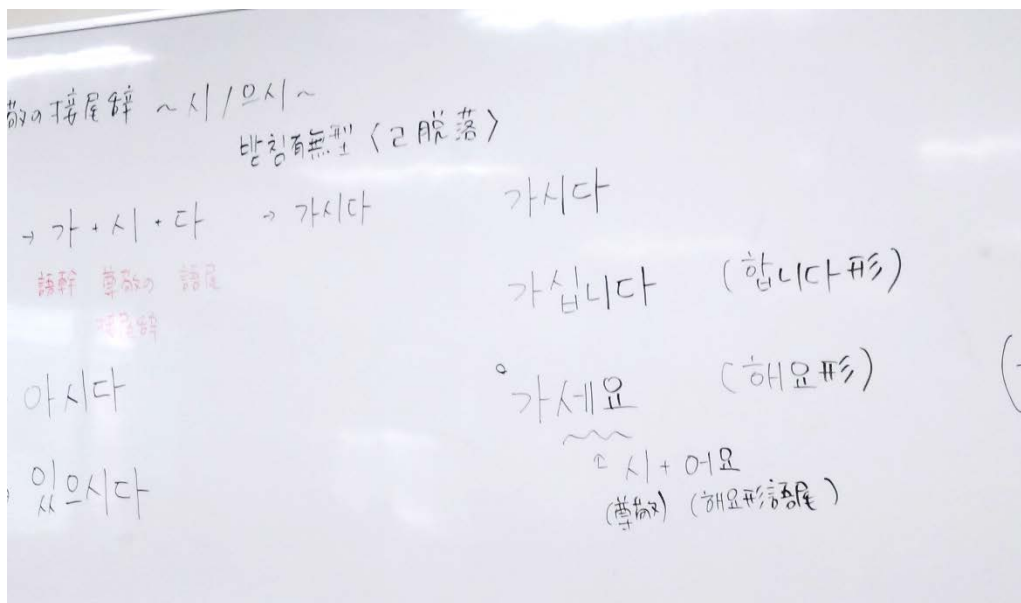 敬の接尾辞 ~시/으시~
받침有無型〈ㄹ脱落〉
→ 가+시+다 → 가시다
語幹 尊敬の 語尾
接尾辞
아시다
있으시다
가시다
가십니다 (합니다形)
가세요 (해요形)
시+어요
(尊敬) (해요形語尾)